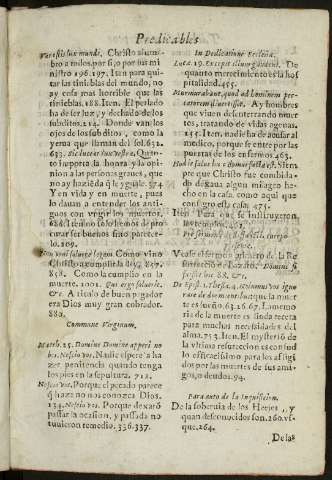 Predicables
Vos estis lux mundi. Christo alum-
bro a todos, por si, o por sus mi
nistro 196.197. Iten para qui-
tar las tinieblas del mundo, no
ay cosa mas horrible que las
tinieblas. 188. Iten. El perlado
ha de ser luz, y dechado de los
subditos. 214. Donde van los
ojos de los subditos, como la
yerua que llaman del sol. 632.
633. sic luceat lux vestra, Quan-
to importa la honra y la opi-
nion a las personas graues, que
no ay haziéda q̃ le yguale. 574
Y en vida y en muerte, pues
lo dauan a entender los anti-
guos con vngir los muertos.
solo hemos de pro-
curar ser buenos sino parecer-
lo. 209.
Non veni soluere legem. Como vino
Christo a cumplir la ley. 857.
858. Como la cumplio en la
muerte. 1001. Qui ergo soluerit.
&c. A titulo de buen pagador
era Dios muy gran cobrador.
880.
Commune Virginum.
Matth. 25. Domine Domine aperi no
bis. Nescio vos. Nadie espere a ha
zer penitencia quando tenga
los pies en la sepultura. 711.
Nescio vos. Porque el pecado parece
q̃ haze no nos conozca Dios.
134. Nescio vos. Porque dexarõ
passar la ocasion, y passada no
tuuieron remedio. 336.337.
In Dedicatione Ecclesiæ.
Luca. 19. Excepit illum gaudens. De
quanto merecimiento es la hos
pitalidad. 455.
Murmurabant, quod ad hominem pec-
catorem diuertisset. Ay hombres
que viuen desenterrando muer
tos, tratando de vidas agenas.
235. Iten. nadie ha de acusar al
medico, porque se entre por las
puertas de los enfermos. 463.
Hodie salus huic domui facta est. Siem
pre que Christo fue combida-
do dexaua algun milagro he-
cho en la casa, como aqui que
consagro esta casa. 475.
Iten. Para que se instituyeron
los templos. 461.
&c.
De Epist. 1. Thess. 4. Nolumus vos igno
rare de dormientibus, que la muer
te es sueño. 65.266.67. La memo
ria de la muerte es linda receta
para muchas necessidades del
alma. 753. Iten. El mysterio de
la vltima resurreccion es consue
lo efficacissimo para los afligi
dos por las muertes de sus ami-
gos, o deudos. 94.
Para auto de la Inquisicion.
De la soberuia de los Hereies, y
quan desconocidos son. 260. vs-
que. 264.
De las